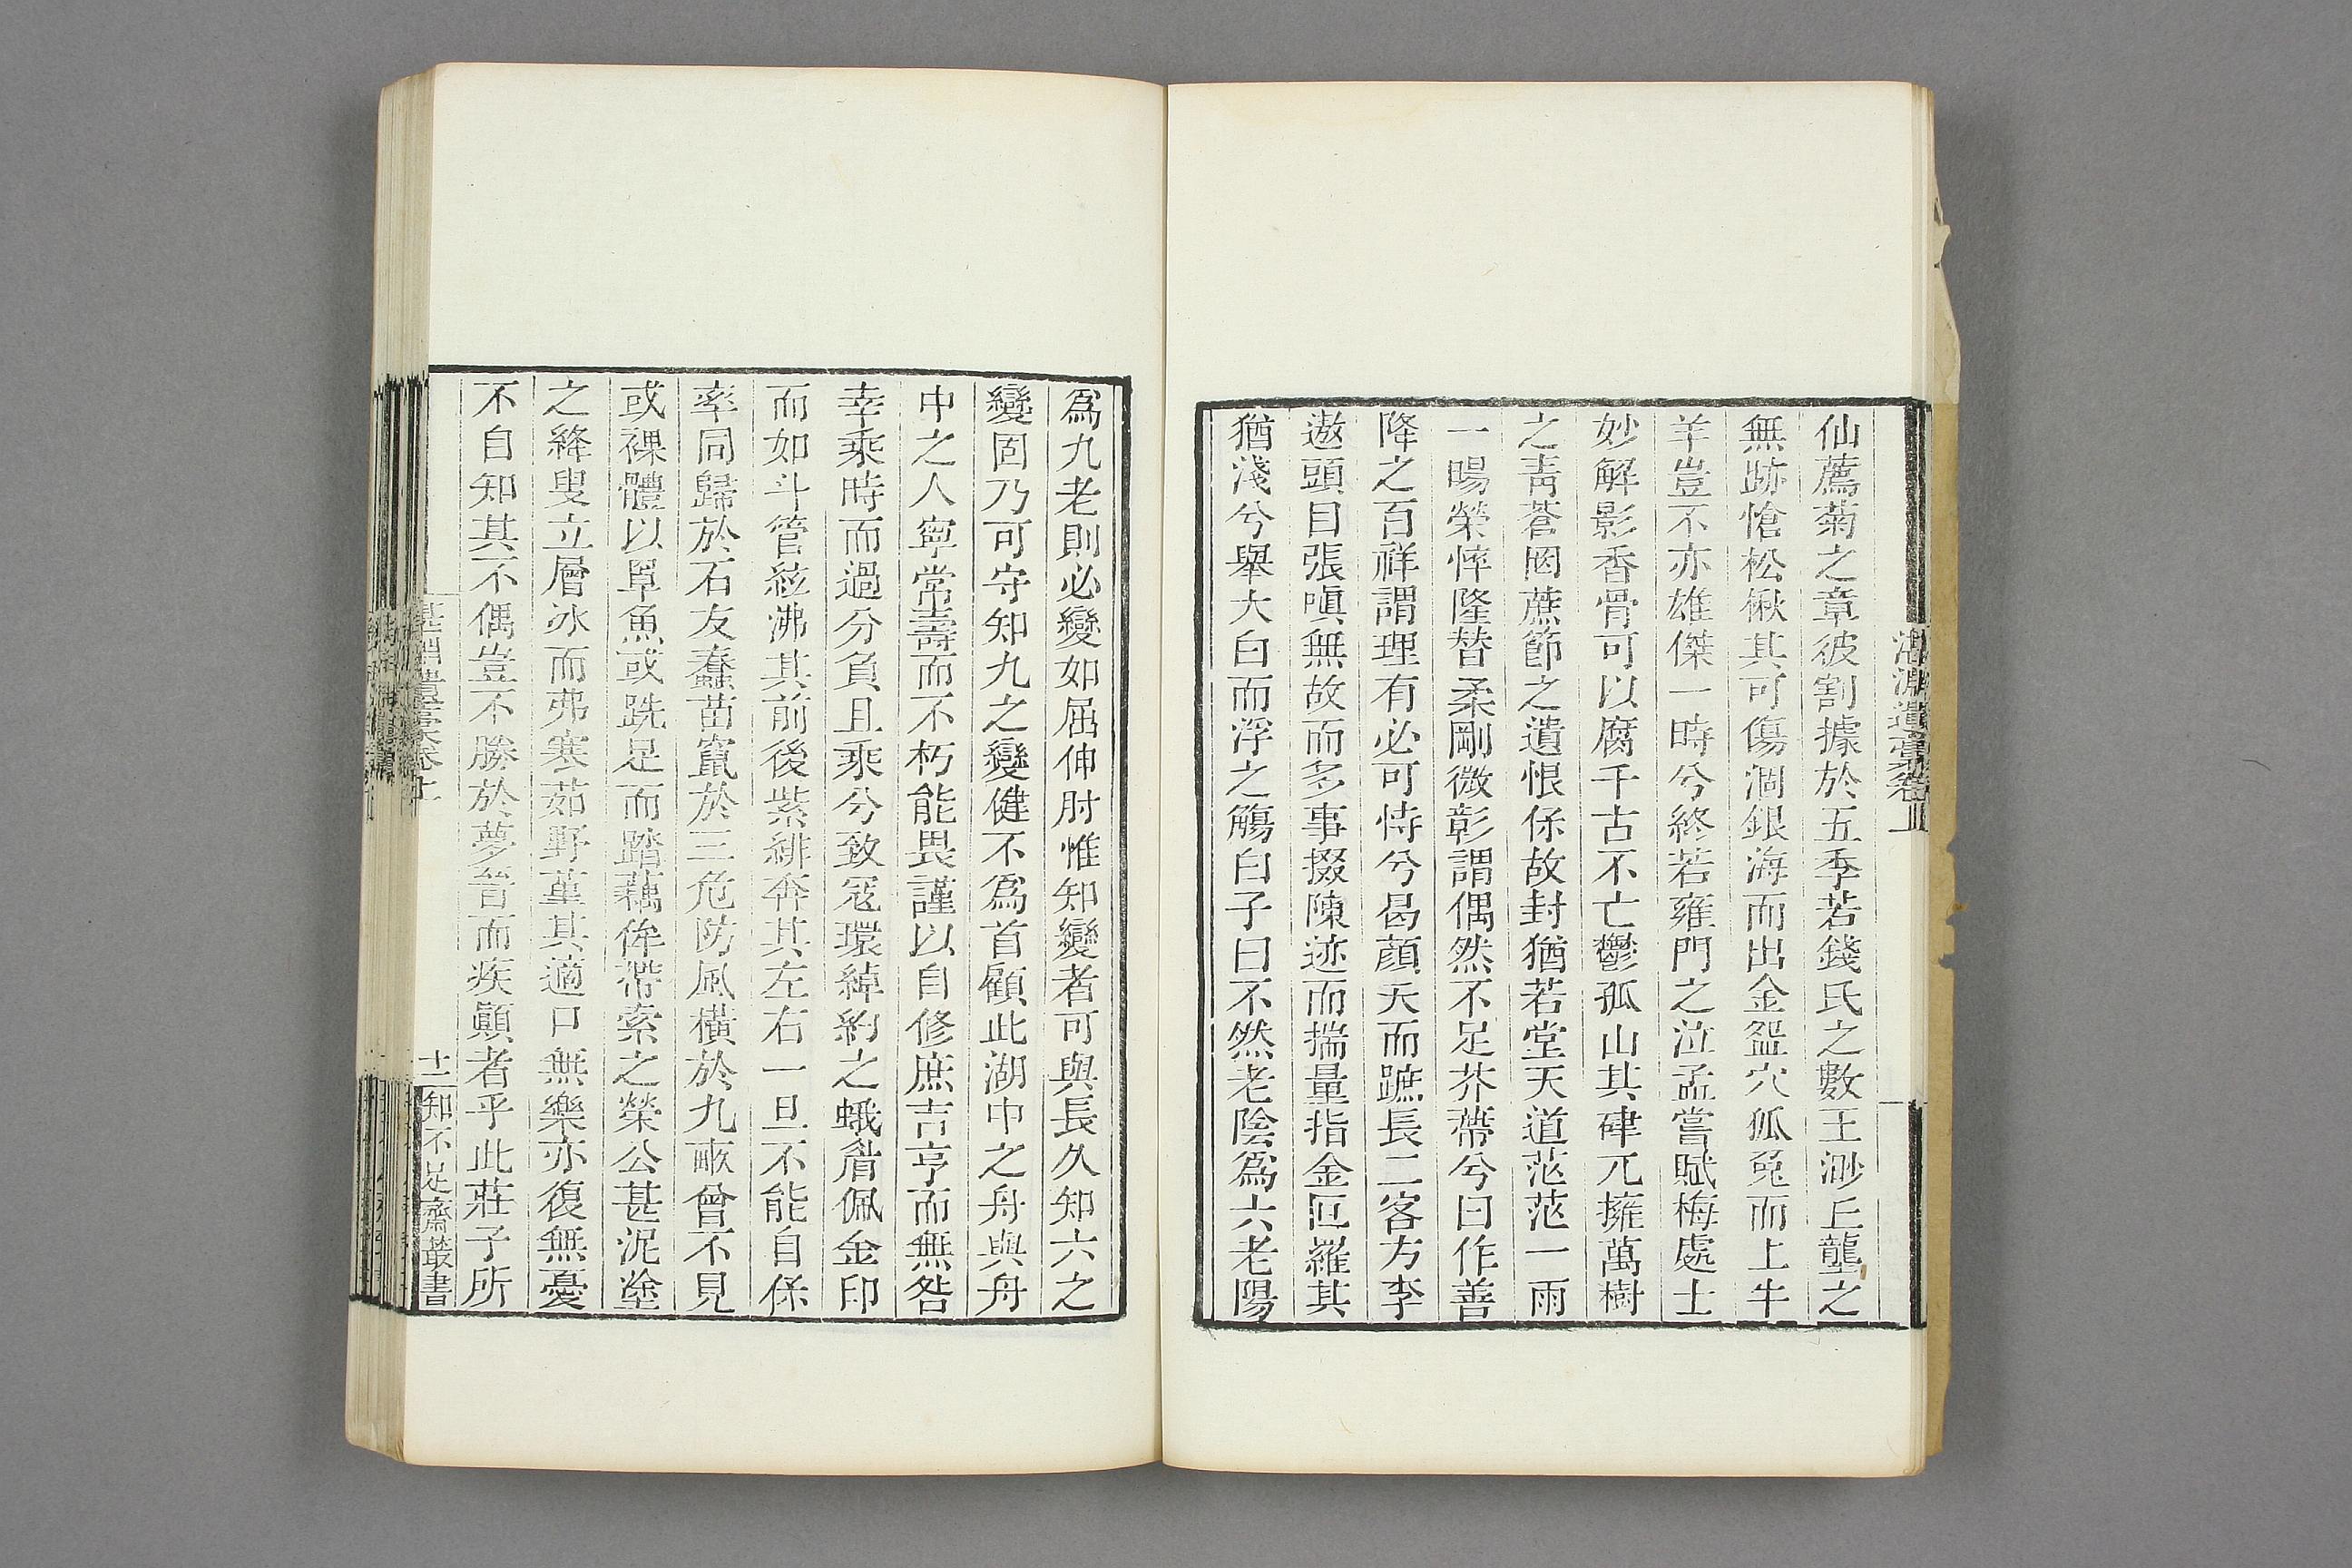 仙薦菊之章彼割據於五季若錢氏之數王渺丘壟之
無跡愴松楸其可傷涸銀海而出金盌穴狐兎而上牛
羊豈不亦雄傑一時兮終若雍門之泣孟嘗賦梅處士
妙解影香骨可以腐千古不亡鬱孤山其硉兀擁萬樹
之靑蒼園蔗節之遺恨係故封猶若堂天道茫茫一雨
一暘榮悴隆替柔剛微彰謂偶然不足芥蔕兮曰作善
降之百祥謂理有必可恃兮曷顔夭而蹠長二客方李
遨頭目張嗔無故而多事掇陳迹而揣量指金叵羅其
猶淺兮舉大白而浮之觴白子曰不然老陰爲六老陽
爲九老則必變如屈伸肘惟知變者可與長久知六之
變固乃可守知九之變健不爲首顧此湖中之舟與舟
中之人寧常壽而不朽能畏謹以自修庶吉亨而無咎
幸乘時而過分負且乘兮致寇環綽約之蛾眉佩金印
而如斗管絃沸其前後紫緋奔其左右一旦不能自係
率同歸於石友蠢苗竄於三危防風橫於九畝曾不見
或裸體以罩魚或跣足而踏藕侔帶索之榮公甚泥塗
之絳叟立層冰而弗寒茹野菫其適口無樂亦復無憂
不自知其不偶豈不勝於夢晉而疾顚者乎此莊子所
湛淵遺稾卷上
十二
知不足齋叢書